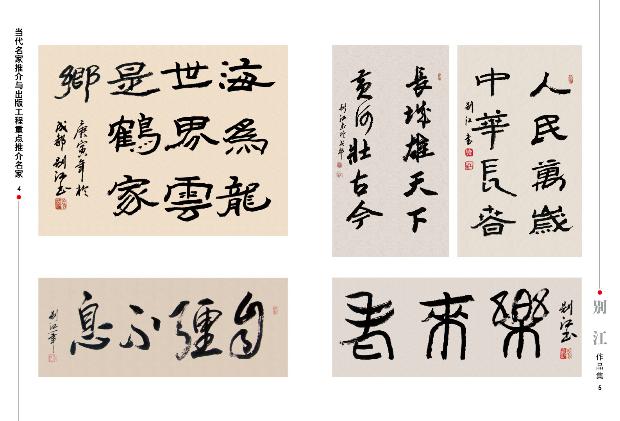 当代名家推介与出版工程重点推介名家
4
海為龍
世界雲
是鶴家
鄉
庚寅年於
成都别江书
長城雄天下
黄河壮古今
别江
人民萬歲
中華長春
别江书
自彊不息
别江
樂來書
别江书
别江
作品集
5